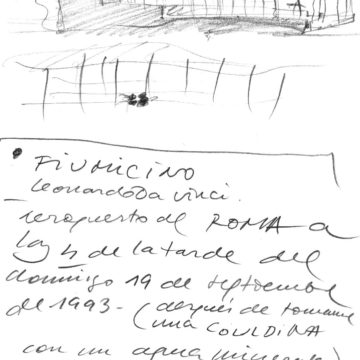 FIUMICINO
Leonardo Da Vinci.
Aeropuerto de ROMA a
las 4 de la tarde del
domingo 19 de septiembre
de 1993- (después de tomarme
una COULDINA
con un agua mineral)